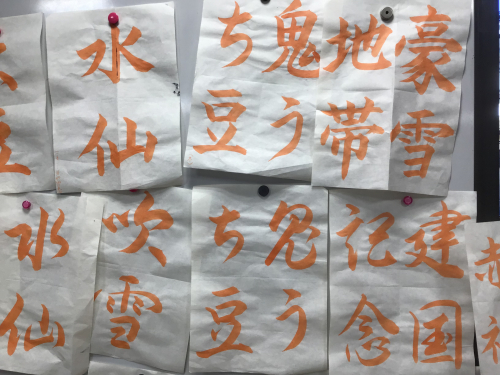 豪雪
地帯
鬼う
ち豆
水仙
建国
記念
鬼う
ち豆
吹雪
水仙